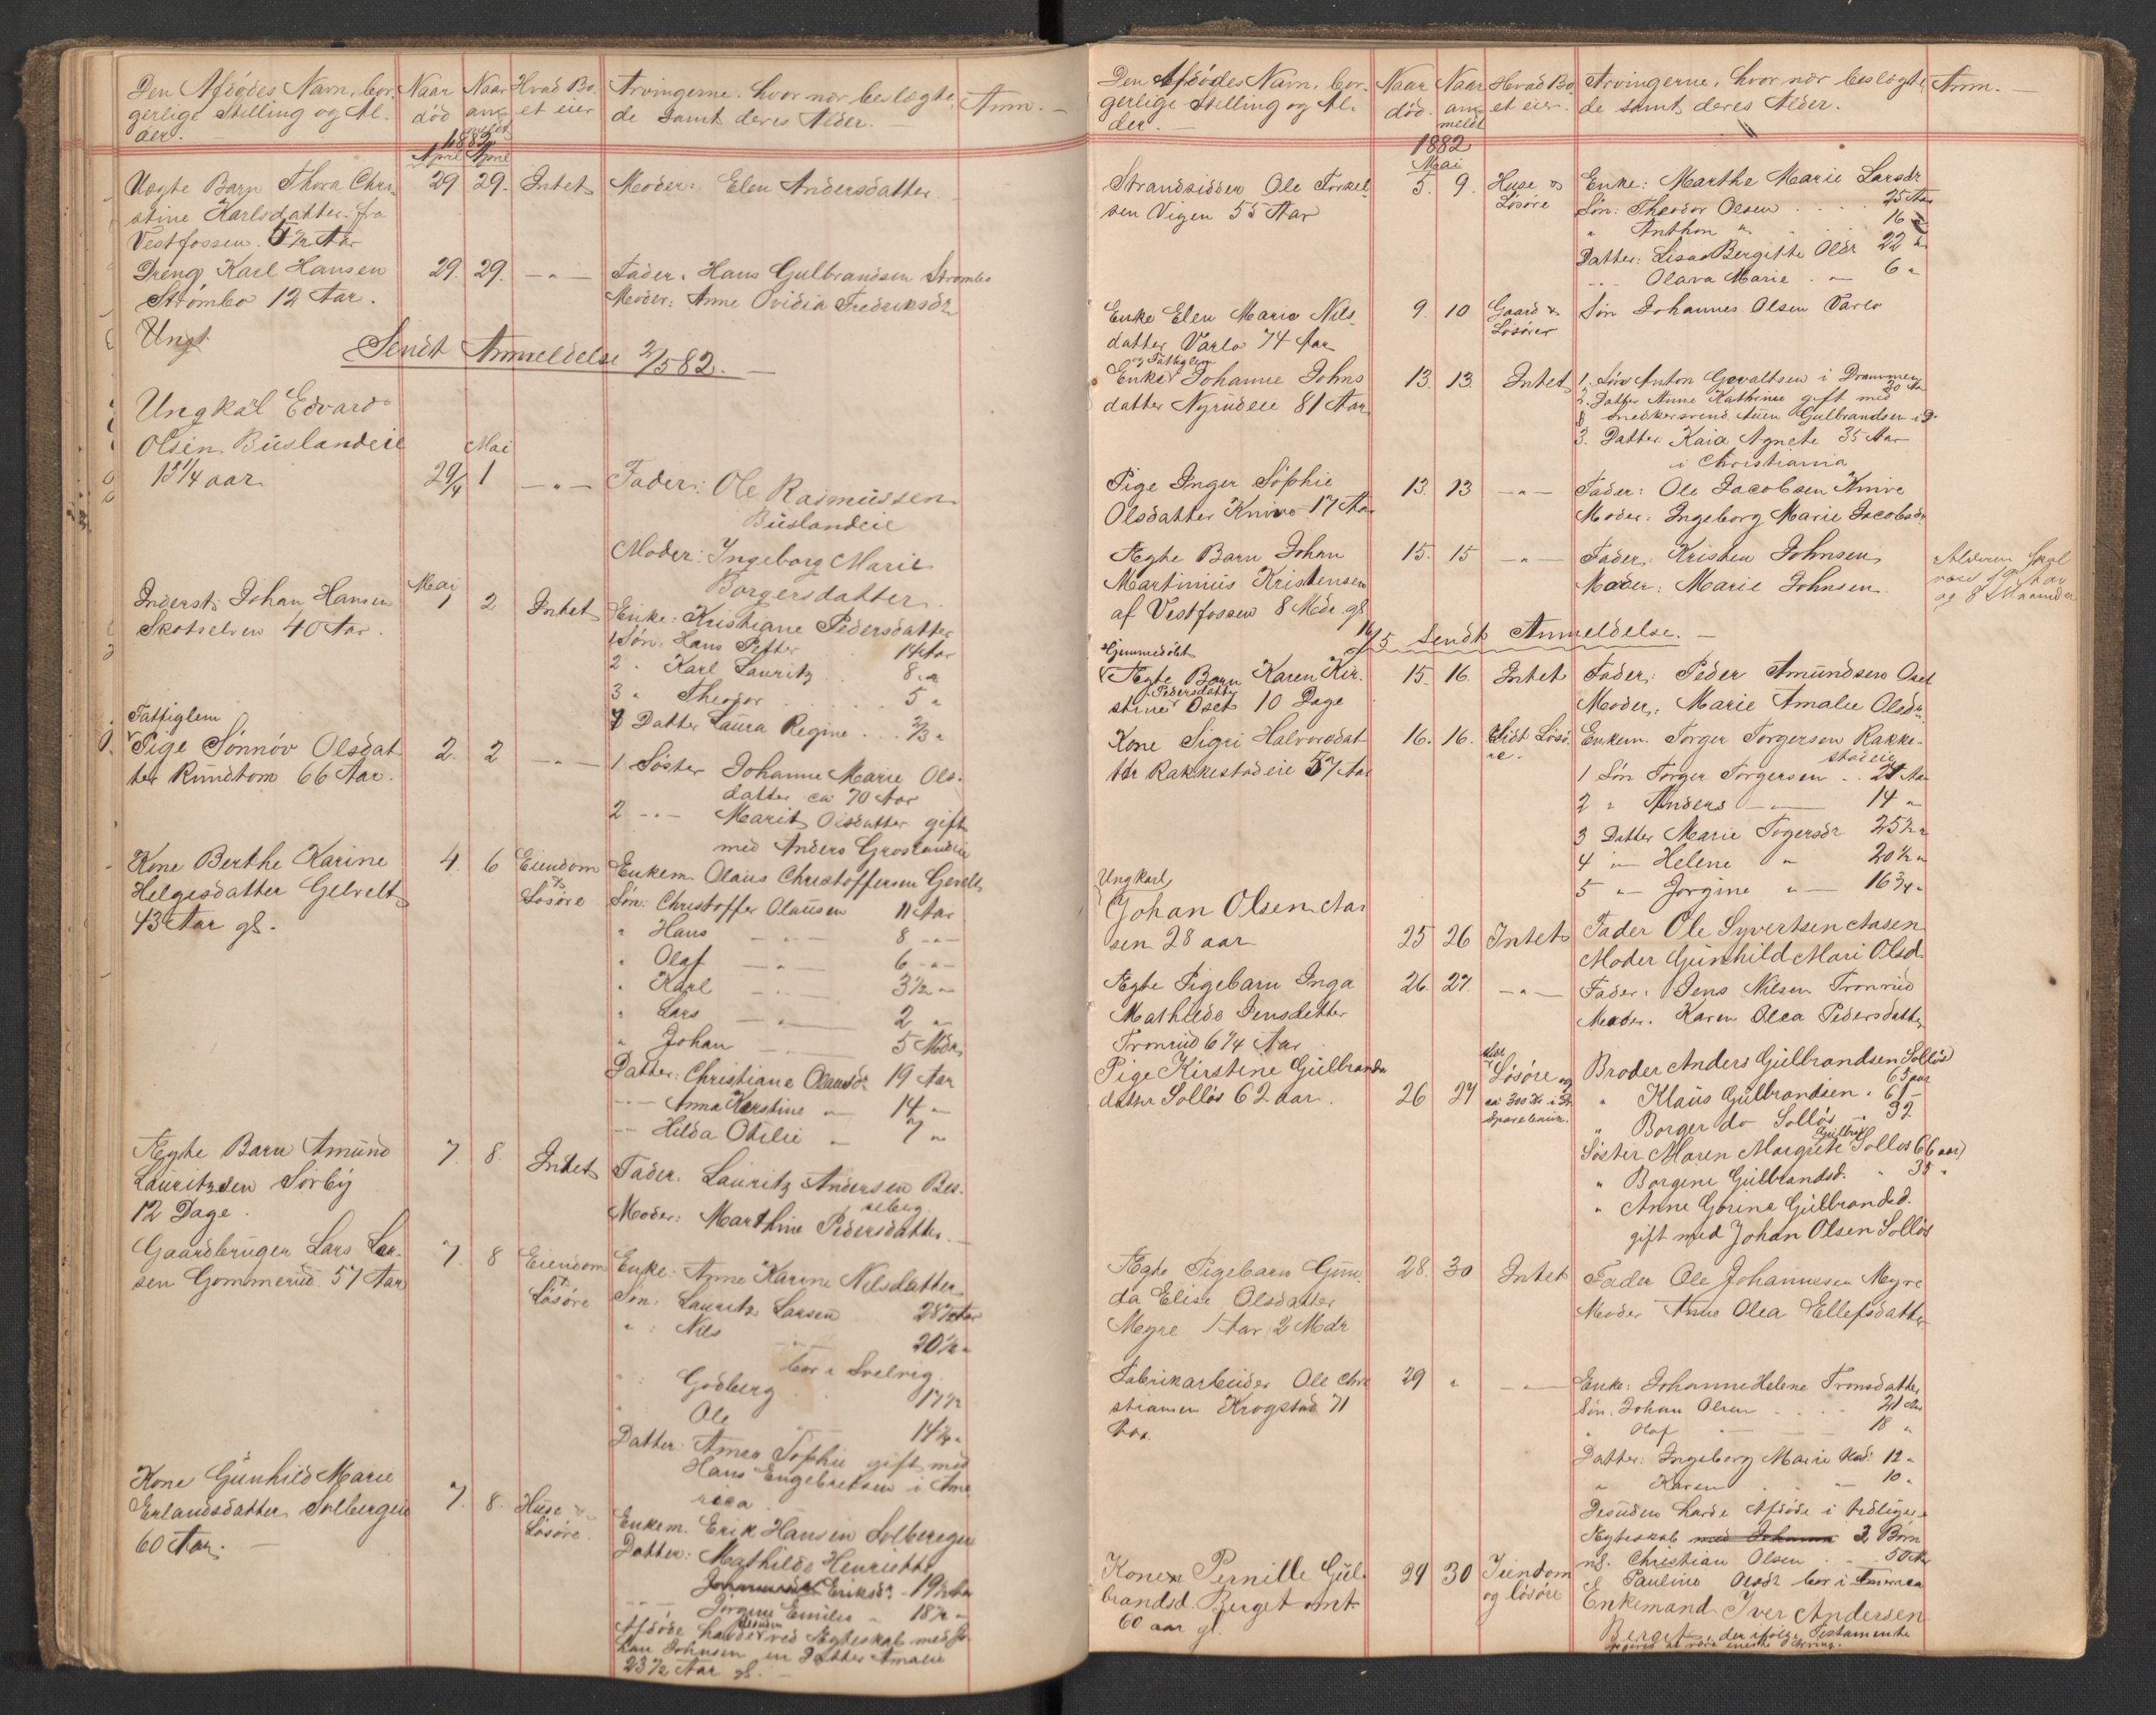 Den Afdödes Navn, bor-
gerlige Stilling og Al-
der.
Naar
död
Naar
an-
meldt
Hvad Bo-
et eier
Arvingerne, hvor nær beslægte-
de samt deres Alder.
Anm. —
1882
April April
Uægte Barn Thora Chri-
stine Karlsdatter fra
Vestfossen 5½ Aar
29 29. Intet
Moder: Elen Andersdatter
Dreng Karl Hansen
Strømbo 12 Aar.
29. 29. — " —
Fader: Hans Gulbrandsen Strømbo
Moder: Anne Ovidia Fredriksdr
Ungt
Sendt Anmeldelse 2/5 82. —
Ungkal Edvard
Olsen Büslandeie
15¼ aar
Mai
29/4 1 — " —
Fader: Ole Rasmüssen
Büslandeie
Moder: Ingeborg Marie
Borgersdatter.
Inderst Johan Hansen
Skotselven 40 Aar.
Mai
1 2 Intet
Enke: Kristiane Pedersdatter
1 Søn: Hans Petter 14 Aar
2 " Karl Lauritz 8 "
3 " Theodor 5 "
4 Datter Laura Regine 2/3 "
Fattiglem
Pige Sønnöv Olsdat-
ter Rundtom 66 Aar.
2. 2 — " —
1 Söster Johanne Marie Ols-
datter ca 70 Aar
2 — " — Marit Olsdatter gift
med Anders Groslandeie
Kone Berthe Karine
Helgesdatter Gevelt
43 Aar gl.
4. 6 Eiendom
&
Lösöre
Enkem. Olaus Christoffersen Gevelt
Søn: Christoffer Olaüsen 11 Aar
" Hans — " — 8 — " —
" Olaf — " — 6 — " —
" Karl — " — 3½ — " —
" Lars — " — 2 "
" Johan — " — 5 Mdr.
Datter: Christiane Olausdr 19 Aar
— " — Anna Kirstine " 14 "
— " — Hilda Otilie " 7 "
Ægte Barn Amünd
Lauritzsen Sörby
12 Dage.
7. 8. Intet
Fader: Lauritz Andersen Bes-
seberg
Moder: Marthine Pedersdatter. —
Gaardbrüger Lars Lar-
sen Gommerud 57 Aar
7. 8 Eiendom
&
Lösöre
Enke: Anne Karine Nilsdatter
Søn: Lauritz Larsen 28½ Aar
" : Nils 20½ "
bor i Svelvig.
" : Godberg 17½
" Ole 14½ "
Datter: Anna Sophie gift med
Hans Engebretsen i Ame-
rica
Kone Günhild Marie
Erlandsdatter Solbergeie
60 Aar. —
7. 8. Huse &
Lösöre.
Enkem. Erik Hansen Solbergeie
Datter: Mathilde Henriette
Eriksdr. 19½ Aar
— " — Jörgine Emilie " 18½ "
Afdöde havde desuden ved Ægteskab med Jo-
han Johnsen en Datter Amalie
23½ Aar gl. —
Den Afdödes Navn, bor-
gerlige Stilling og Al-
der. —
Naar
död.
Naar
an-
meldt
Hvad Bo-
et eier.
Arvingerne, hvor nær beslægte-
de samt deres Alder.
Anm. —
1882
Mai
Strandsidder Ole Torkel-
sen Vigen 55 Aar
5. 9. Huse &
Lösöre
Enke: Marthe Marie Larsdr
Søn: Theodor Olsen 25 Aar
" Anthon " 16 "
Datter: Lisa Bergitte Olsdr 22 "
— " — Olava Marie " 6 "
Enke Elen Marie Nils-
datter Varlo 74 Aar
9. 10 Gaard &
Lösöre
Søn Johannes Olsen Varlo
og Fattiglem
Enke Johanne Johns-
datter Nyrudeie 81 Aar
13. 13. Intet
1. Søn Anton Gevaltsen i Drammen
30 Aar
2. Datter Anne Kathrine gift med
Snedkersvend Auen Gulbrandsen i D.
3. Datter Kaia Agnete 35 Aar
i Christiania
Pige Inger Sophie
Olsdatter Knive 17 Aar
13. 13 — " —
Fader: Ole Jacobsen Knive
Moder: Ingeborg Marie Jacobsdr
Ægte Barn Johan
Martinius Kristensen
af Vestfossen 8 Mdr. gl
15. 15 — " —
Fader: Kristen Johnsen
Moder: Marie Johnsen.
Alderen skal
være 1 Aar
og 8 Maaneder
16/5 Sendt Anmeldelse. —
Hjemmedöbt
Ægte Barn Karen Kir-
Pedersdatter
stine Oset 10 Dage
15. 16. Intet
Fader: Peder Amündsen Oset
Moder: Marie Amalie Olsdr.
Kone Sigri Halvorsdat-
ter Rakkestadeie 57 Aar
16. 16. Lidt Lösö-
re.
Enkem. Torger Torgersen Rakke-
stadeie
1 Søn Torger Torgersen 21 Aar
2 " Anders — " — 14 "
3 Datter Marie Togersdr 25½ "
4 " — Helene " 20½ "
5 " — Jorgine " — 16¾ "
Ungkarl
Johan Olsen Aas-
sen 28 aar
25 26 Intet
Fader Ole Syvertsen Aasen
Moder Günhild Mari Olsd.
Ægte Pigebarn Inga
Mathilde Jensdatter
Tronrüd 6¼ Aar
26. 27. — " —
Fader: Jens Nilsen Tronrüd
Moder: Karen Olea Pedersdatter
Pige Kirstine Gülbrands-
datter Sollös 62 aar.
26 27
Lidt
Lösöre og
ca 300 Kr. i
Sparebank.
Broder Anders Gülbrandsen Sollös
65 aar
" Klaüs Gülbrandsen " 61 —
" Borger do Sollös — 32
Söster Maren Margrete Gülbrd. Sollös (66 aar)
" Borgine Gülbrandsd. " 35 "
" Anne Gorine Gülbrandsd.
gift med Johan Olsen Sollös
Ægte Pigebarn Gün-
da Elise Olsdatter
Myre 1 Aar 2 Mdr
28. 30 Intet
Fader Ole Johannesen Myre
Moder Anne Olea Ellefsdatter
Fabrikarbeider Ole Chri-
stiansen Krogstad 71
Aar
29 " — " —
Enke: Johanne Helene Tronsdatter
Søn: Johan Olsen 21 Aar
" Olaf — 18 "
Datter: Ingeborg Marie 12 "
" Karen — 10 "
Desuden havde Afdöde i tidligere
Ægteskab med Johanne 2 Børn
nl. Christian Olsen 50 Aar
& Pauline Olsdr bor i America
Kone Pernille Gül-
brandsd. Berget omt.
60 aar gl.
29 30 Eiendom
og lösöre
Enkemand Iver Andersen
Berget, der ifölge Testamente